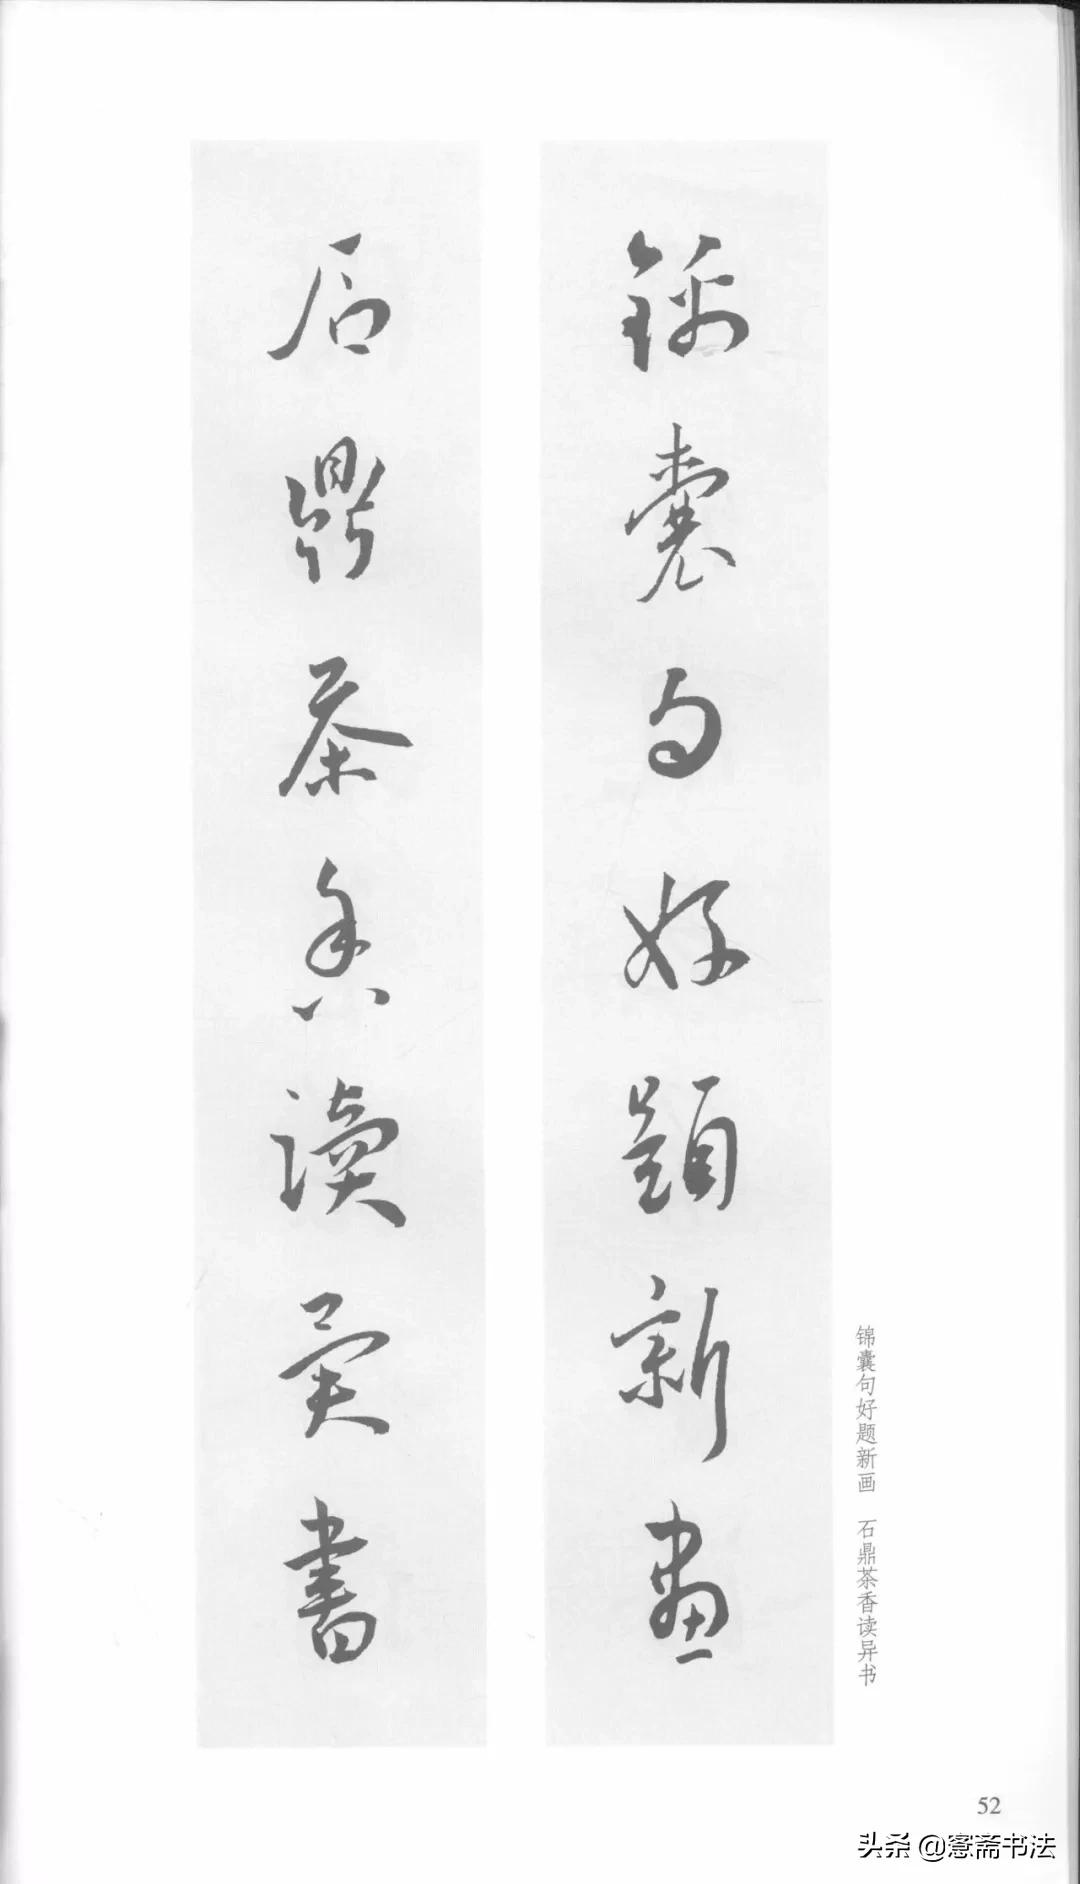 錦囊句好題新畫
石鼎茶香讀異書
锦囊句好题新画 石鼎茶香读异书
52
头条 @窓斋书法